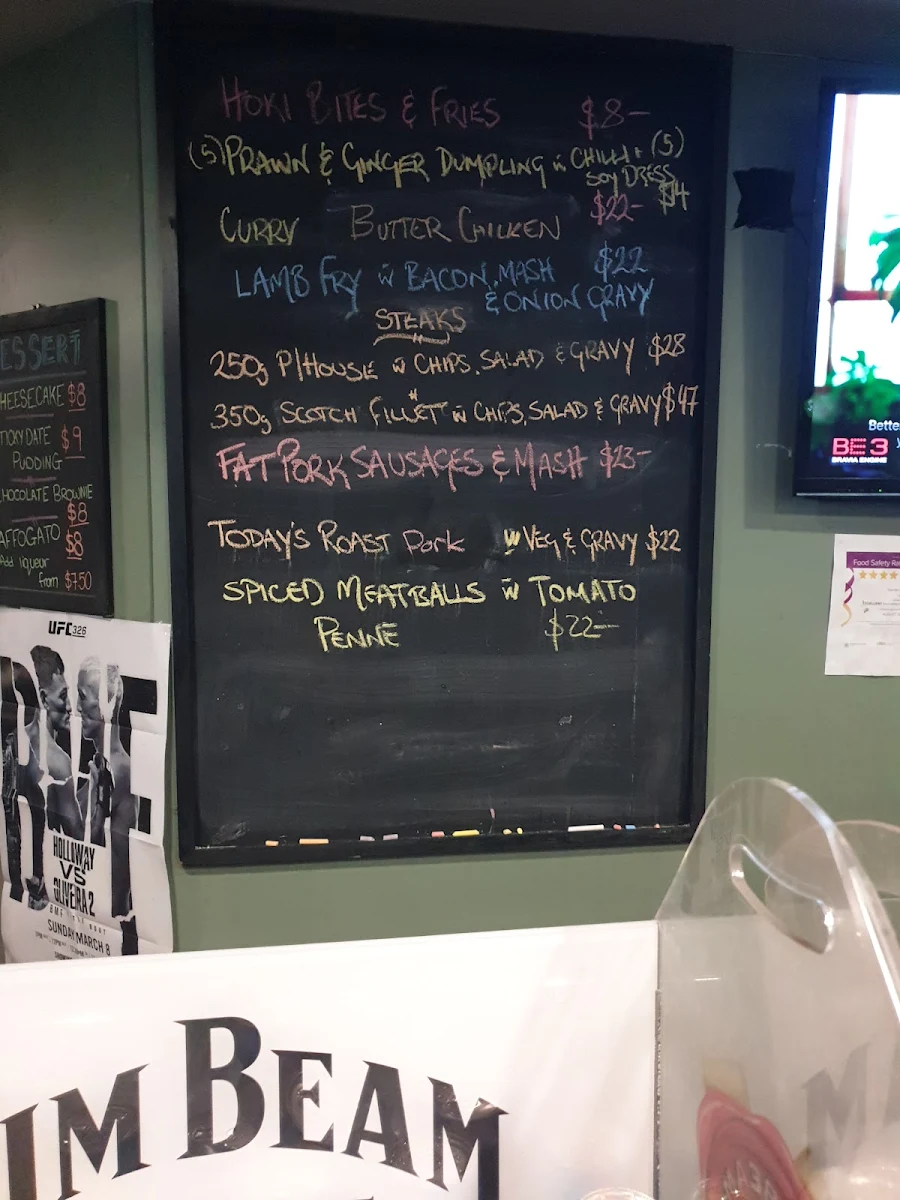 HOKI BITES & FRIES $8-
(5) PRAWN & GINGER DUMPLING w CHILLI + (5)
SOY DRESS
$14
CURRY BUTTER CHICKEN $22-
LAMB FRY w BACON, MASH $22
& ONION GRAVY
STEAKS
250g P/HOUSE w CHIPS, SALAD & GRAVY $28
350g SCOTCH FILLET w CHIPS, SALAD & GRAVY $47
FAT PORK SAUSAGES & MASH $23-
TODAY'S ROAST Pork w VEG & GRAVY $22
SPICED MEATBALLS w TOMATO
PENNE $22-
ESSERT
HEESECAKE $8
TICKY DATE $9
PUDDING
HOCOLATE BROWNIE
$8
AFFOGATO $8
Add liqueur
from $7.50
UFC 326
HOLLOWAY
VS
OLIVEIRA 2
BMF TITLE BOUT
SUNDAY MARCH 8
Bette
BE3
BRAVIA ENGINE
Food Safety Ra
IM BEAM